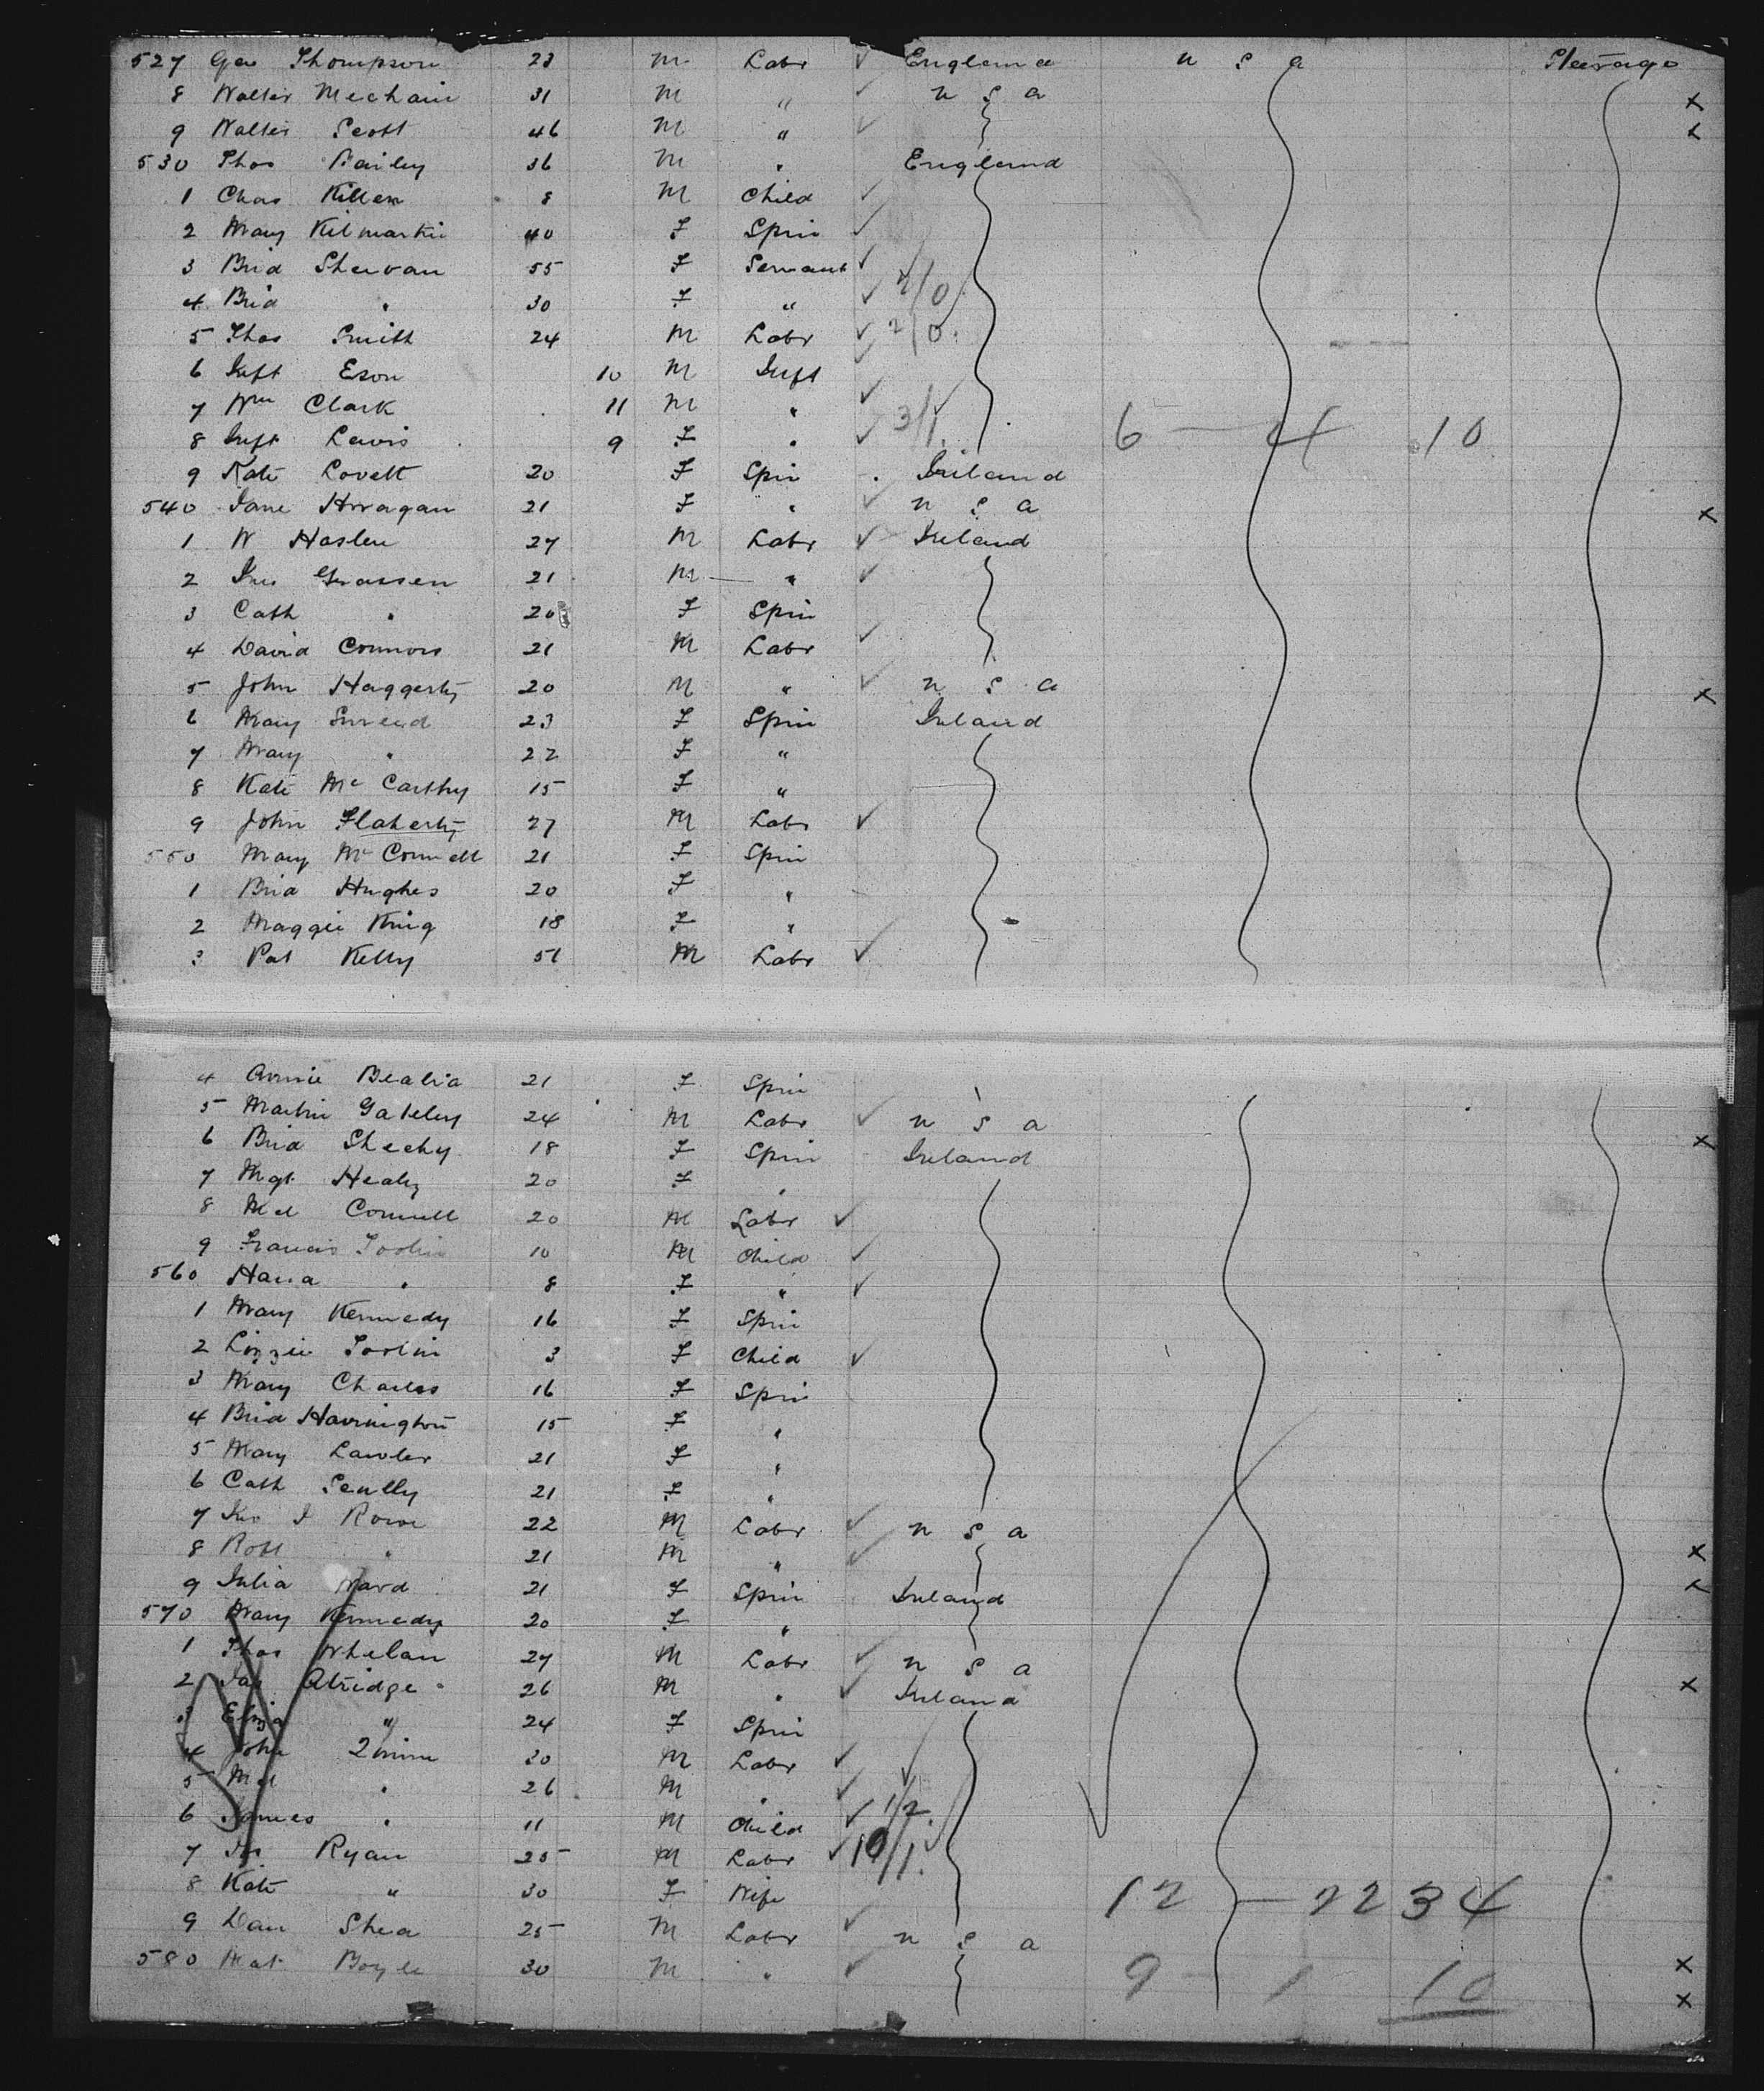 527 Geo Thompson 23 M Labr ✓ England U S A Steerage
8 Walter Mechain 31 M " ✓ U S A x
9 Walter Scott 46 M " ✓ x
530 Thos Bailey 36 M " England
1 Chas Killen 8 M Child ✓
2 Mary Kilmartin 40 F Spin ✓
3 Brid Shervan 55 F Servant ✓
4 Brid " 30 F " ✓ 2/0
5 Thos Smith 24 M Labr ✓ 2/0
6 Inft Eson 10 M Inft ✓
7 Wm Clark 11 M " ✓ 3/1
8 Inft Lewis 9 F " ✓ 6 — 4 10
9 Kate Lovett 20 F Spin Ireland
540 Jane Horagan 21 F " ✓ U S A x
1 W Haslen 27 M Labr ✓ Ireland
2 Jno 21 M " ✓
3 Cath " 20 F Spin
4 David Connors 21 M Labr ✓
5 John Haggerty 20 M " ✓ U S A x
6 Mary 23 F Spin Ireland
7 Mary " 22 F "
8 Kate Mc Carthy 15 F "
9 John Flaherty 27 M Labr ✓
550 Mary McConnell 21 F Spin
1 Brid Hughes 20 F "
2 Maggie King 18 F "
3 Pat Kelly 51 M Labr ✓
4 Annie Bealia 21 F Spin
5 Martin Gateley 24 M Labr ✓ U S A x
6 Brid Sheehy 18 F Spin Ireland
7 Mgt Healy 20 F "
8 Ml Connell 20 M Labr ✓
9 Francis Toolin 10 M Child ✓
560 Hana " 8 F " ✓
1 Mary Kennedy 16 F Spin
2 Lizzie Toolin 3 F Child ✓
3 Mary Charles 16 F Spin
4 Brid Harrington 15 F "
5 Mary Lawler 21 F "
6 Cath Scully 21 F "
7 Jno J Rowe 22 M Labr ✓ U S A x
8 Robt " 21 M " ✓ x
9 Julia Ward 21 F Spin Ireland
570 Mary Kennedy 20 F "
1 Thos Whelan 27 M Labr ✓ U S A x
2 Jas Atridge 26 M " ✓ Ireland
3 Eliza " 24 F Spin
4 John Quinn 30 M Labr ✓
5 Ml " 26 M " ✓
6 James " 11 M Child ✓ 1/2
7 Jas Ryan 25 M Labr ✓ 10/1
8 Kate " 30 F Wife 12 — 22 34
9 Dan Shea 25 M Labr ✓ U S A x
580 Mat Boyle 30 M " ✓ 9 1 10 x